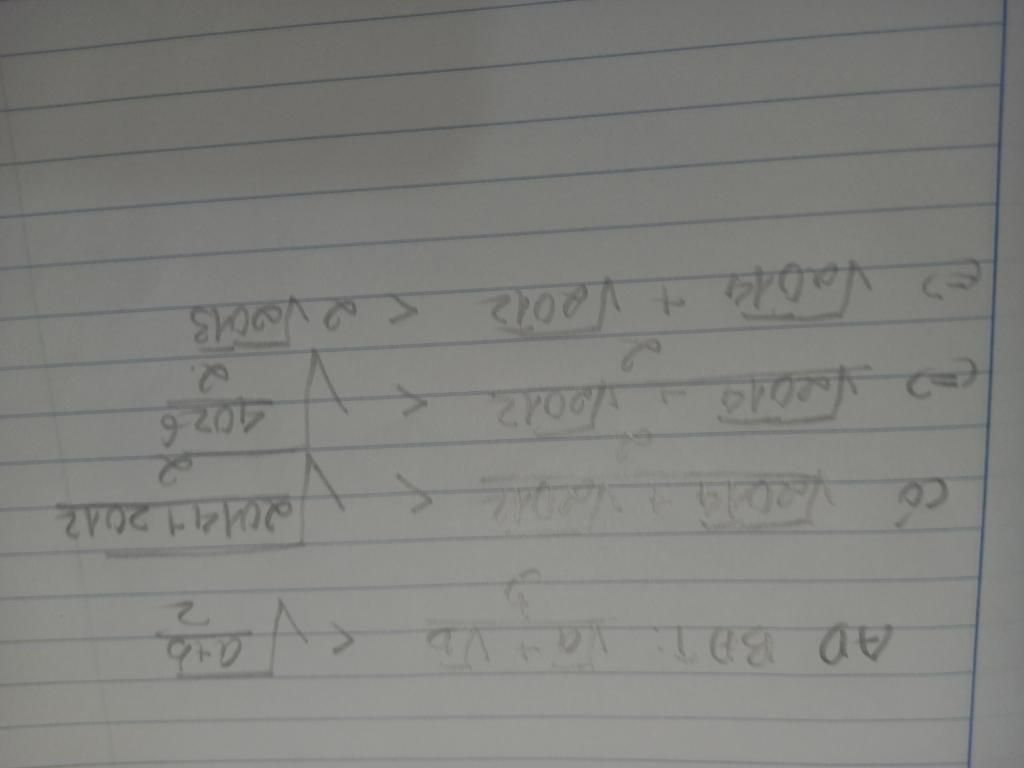 AD BĐT: (√a + √b)/2 < √((a+b)/2)
Có (√2014 + √2012)/2 < √((2014+2012)/2)
<=> (√2014 + √2012)/2 < √(4026/2)
<=> √2014 + √2012 < 2√2013